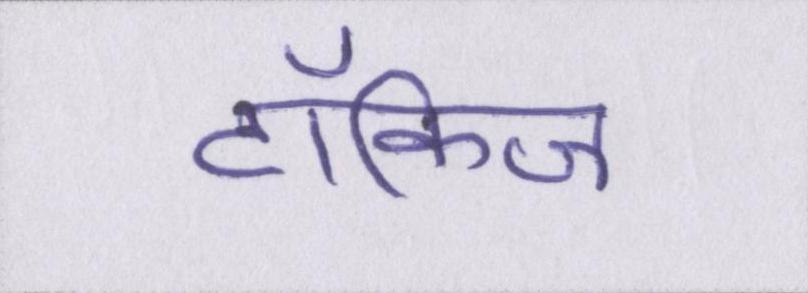 टॉकिज